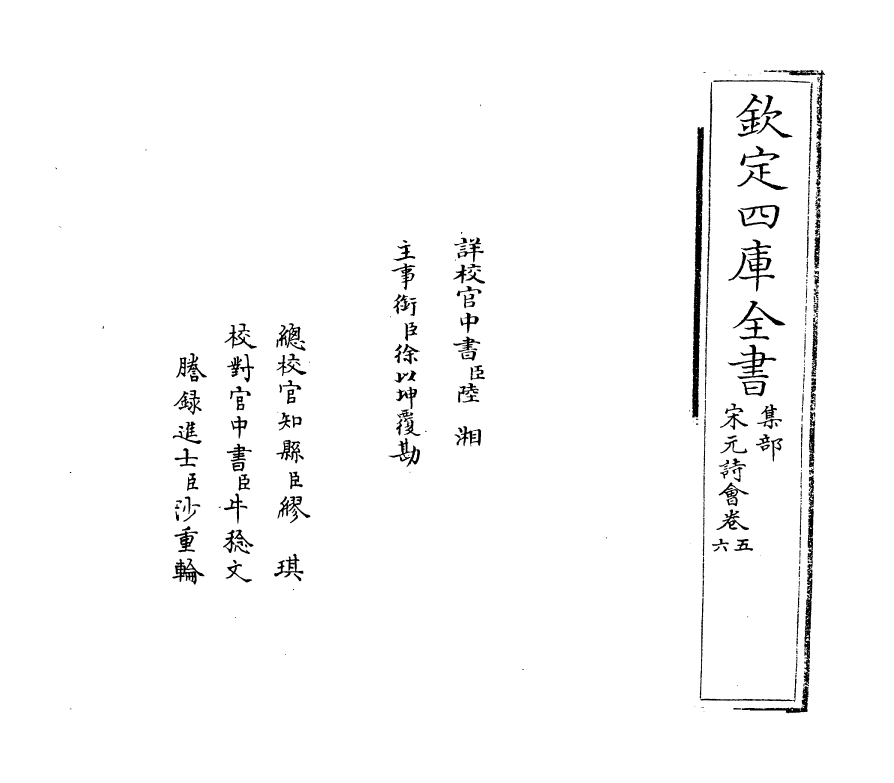 欽定四庫全書
集部
宋元詩會卷五六
詳校官中書臣陸湘
主事銜臣徐以坤覆勘
總校官知縣臣繆琪
校對官中書臣牛稔文
謄錄進士臣沙重輪